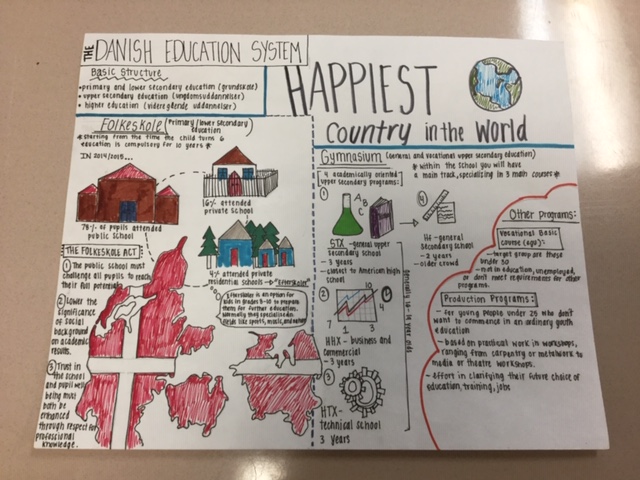 THE DANISH EDUCATION SYSTEM
Basic Structure
• primary and lower secondary education (grundskole)
• upper secondary education (ungdomsuddannelser)
• higher education (videregående uddannelser)
HAPPIEST
Country in the World
Folkeskole (Primary/lower secondary)
education
*starting from the time the child turns 6
education is compulsory for 10 years *
IN 2014/2015...
78% of pupils attended
public school
16% attended
private school
4% attended private
residential schools → "Efterskoler"
Efterskoler is an option for
kids in Grades 8-10 to prepare
them for further education.
Normally they specialise in
fields like sports, music, and nature
THE FOLKESKOLE ACT
① The public school must
challenge all pupils to reach
their full potential
② Lower the
significance
of social
background
on academic
results.
③ Trust in
the school
and pupil well
being must
both be
enhanced
through respect for
professional
knowledge.
Gymnasium (General and vocational upper secondary education)
* within the school you will have
a main track, specializing in 3 main courses *
4 academically oriented
upper secondary programs:
①
A B
C
STX - general upper
secondary school
- 3 years
- closest to American high
school
②
10
4
7 1 3
HHX - business and
commercial
- 3 years
③
HTX -
technical school
3 years
④
Hf - general
secondary school
- 2 years
- older crowd
Other Programs:
Vocational Basic
Course (egu):
- target group are those
under 30
- not in education, unemployed,
or don't meet requirements for other
programs.
Production Programs:
- for young people under 25 who don't
want to commence in an ordinary youth
education
- based on practical work in workshops,
ranging from carpentry or metalwork to
media or theatre workshops.
- effort in clarifying their future choice of
education, training, jobs